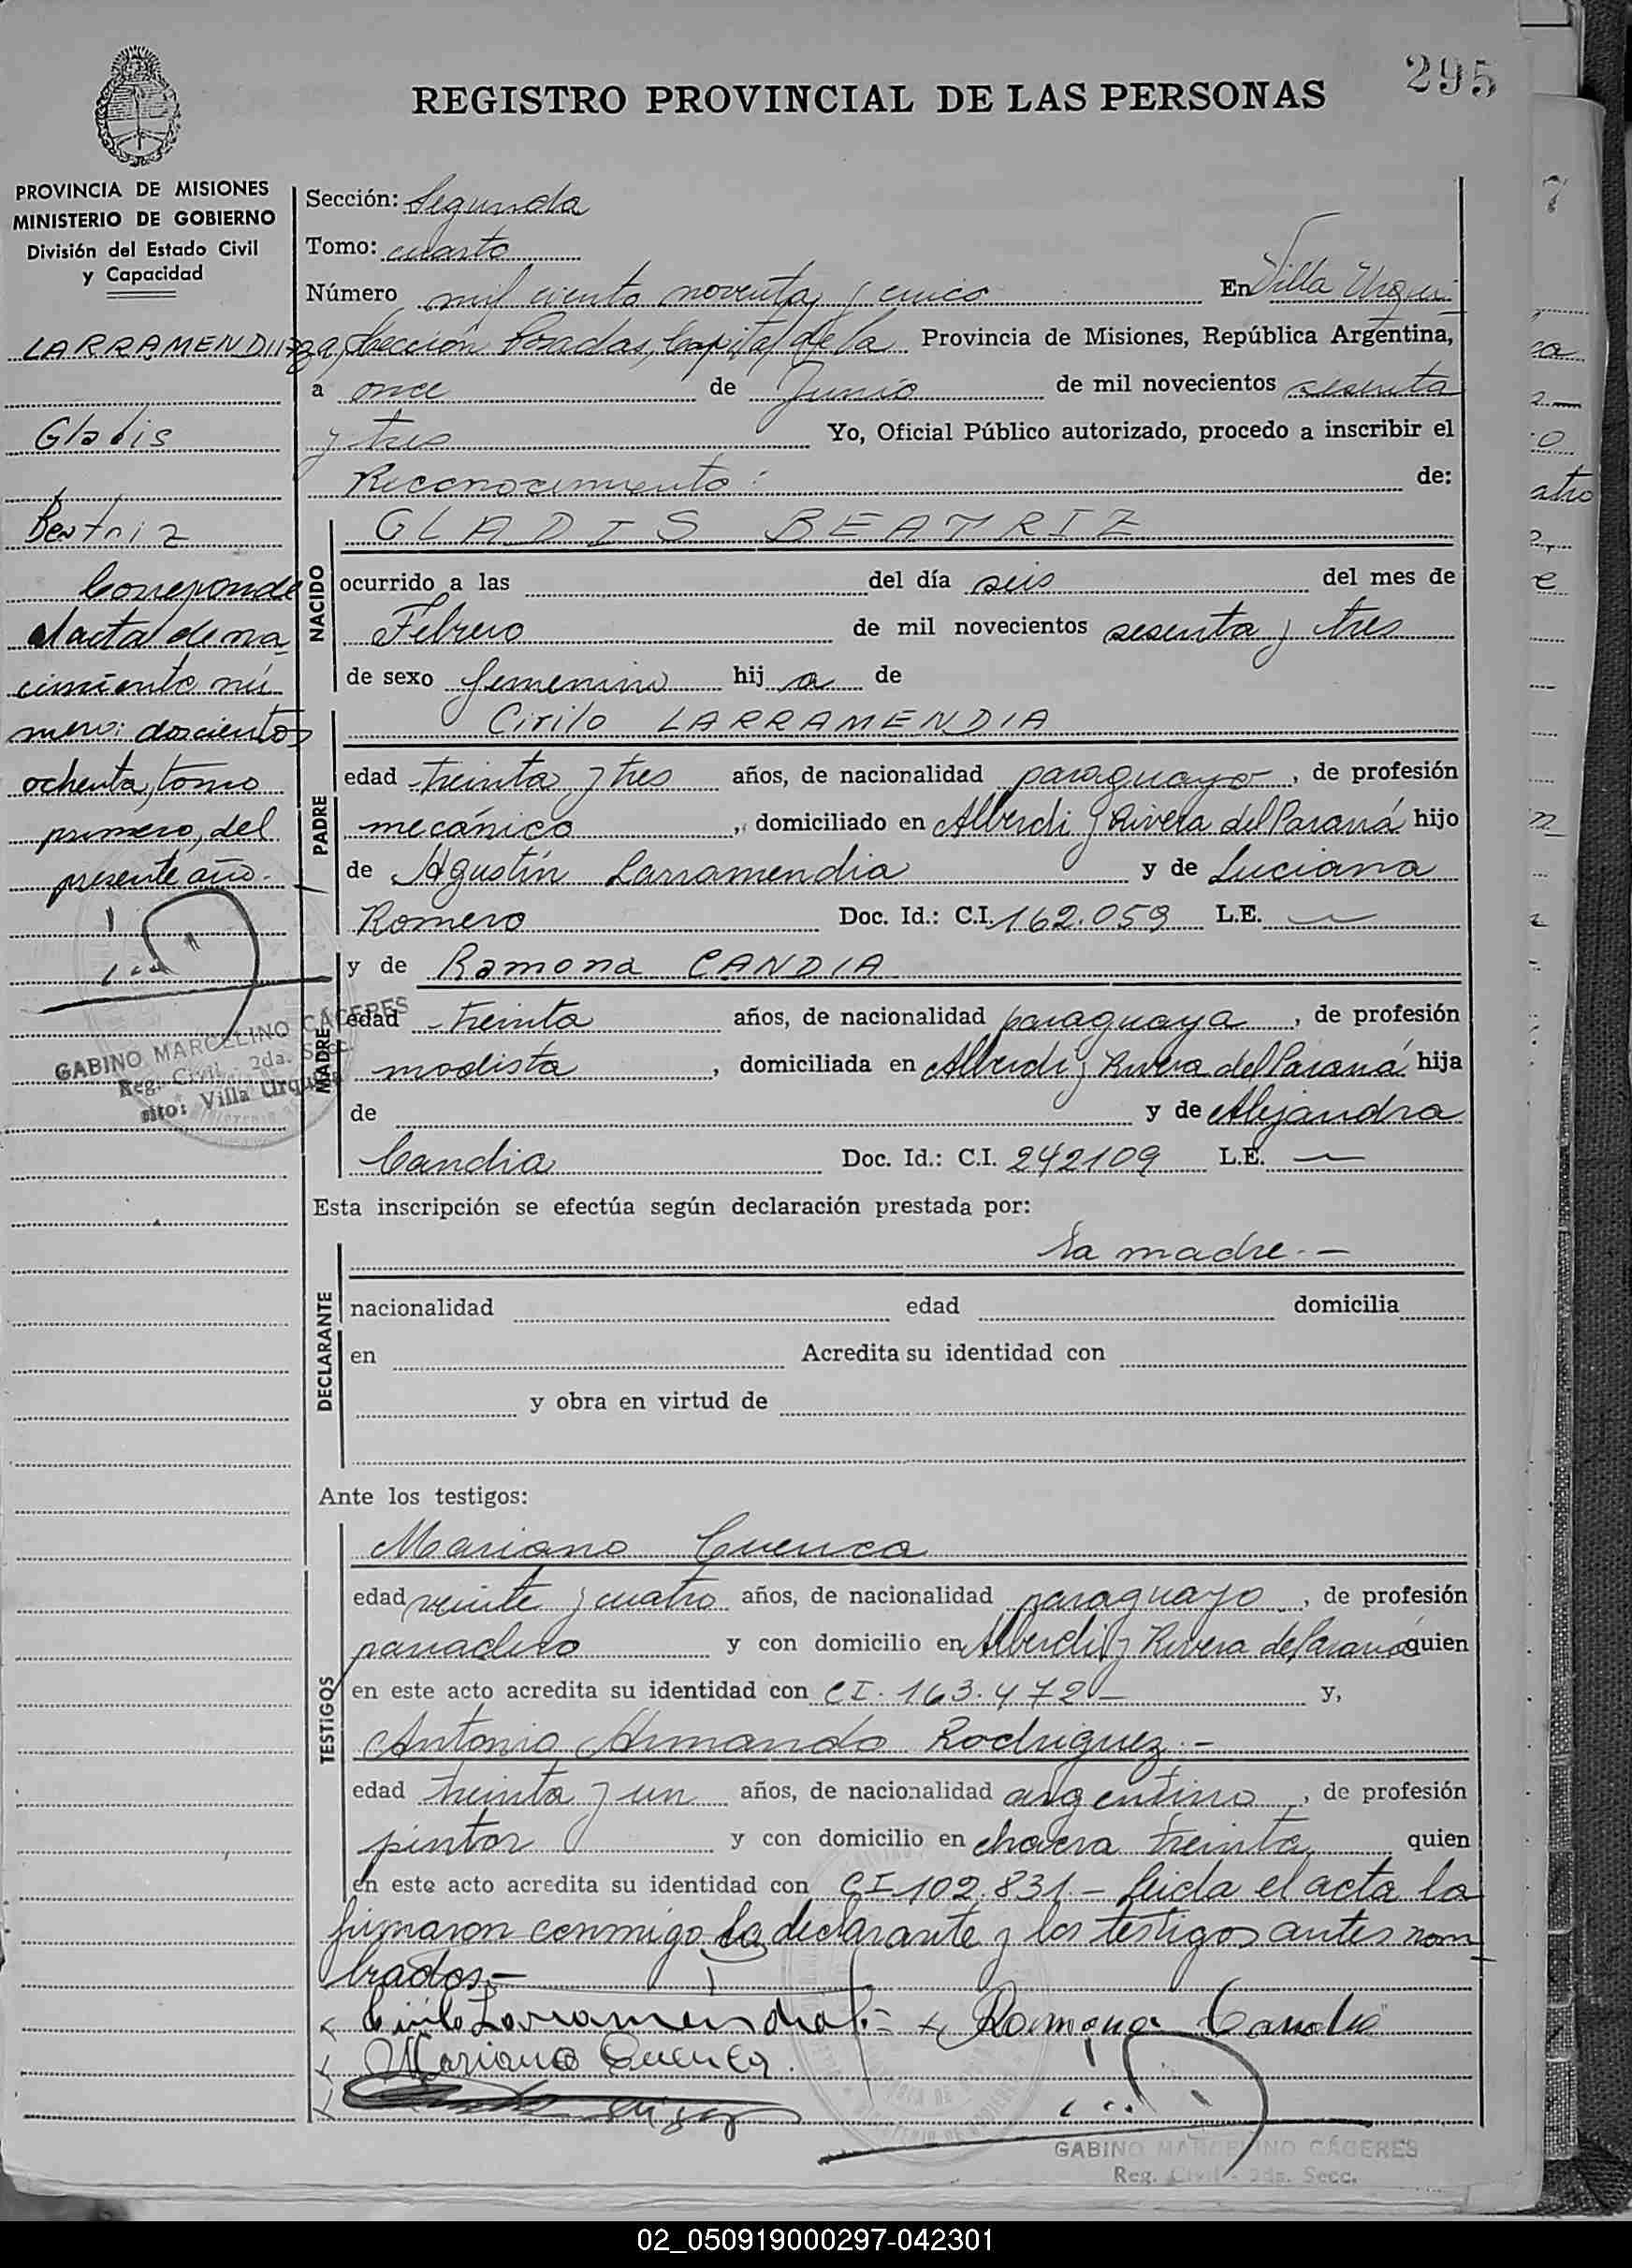 295
REGISTRO PROVINCIAL DE LAS PERSONAS
PROVINCIA DE MISIONES
MINISTERIO DE GOBIERNO
División del Estado Civil
y Capacidad
LARRAMENDI
Gladis
Beatriz
Correponde
al acta de na
cimiento nú
mero: doscientos
ochenta, tomo
primero, del
presente año.
GABINO MARCELINO CACERES
Reg. Civil - 2da. Secc.
Villa Urquiza
Sección: Segunda
Tomo: cuarto
Número mil ciento noventa y cinco En Villa Urqui
za, Sección Posadas, Capital de la Provincia de Misiones, República Argentina,
a once de Junio de mil novecientos sesenta
y tres Yo, Oficial Público autorizado, procedo a inscribir el
Reconocimiento: de:
NACIDO
GLADIS BEATRIZ
ocurrido a las del día seis del mes de
Febrero de mil novecientos sesenta y tres
de sexo femenino hij a de
PADRE
Cirilo LARRAMENDIA
edad treinta y tres años, de nacionalidad paraguayo, de profesión
mecánico, domiciliado en Alberdi y Rivera del Paraná hijo
de Agustín Larramendia y de Luciana
Romero Doc. Id.: C.I. 162.059 L.E. —
MADRE
y de Ramona CANDIA
edad treinta años, de nacionalidad paraguaya, de profesión
modista, domiciliada en Alberdi y Rivera del Paraná hija
de y de Alejandra
Candia Doc. Id.: C.I. 242109 L.E. —
Esta inscripción se efectúa según declaración prestada por:
DECLARANTE
la madre.-
nacionalidad edad domicilia
en Acredita su identidad con
y obra en virtud de
Ante los testigos:
TESTIGOS
Mariano Cuenca
edad veinte y cuatro años, de nacionalidad paraguayo, de profesión
panadero y con domicilio en Alberdi y Rivera del Paraná quien
en este acto acredita su identidad con CI. 163.472 - y,
Antonio Armando Rodriguez.-
edad treinta y un años, de nacionalidad argentino, de profesión
pintor y con domicilio en chacra treinta quien
en este acto acredita su identidad con CI 102.831.- Leida el acta la
firmaron conmigo la declarante y los testigos antes nom
brados.-
Cirilo Larramendia Ramona Candia
Mariano Cuenca
GABINO MARCELINO CÁCERES
Reg. Civil - 2da. Secc.
02_050919000297-042301